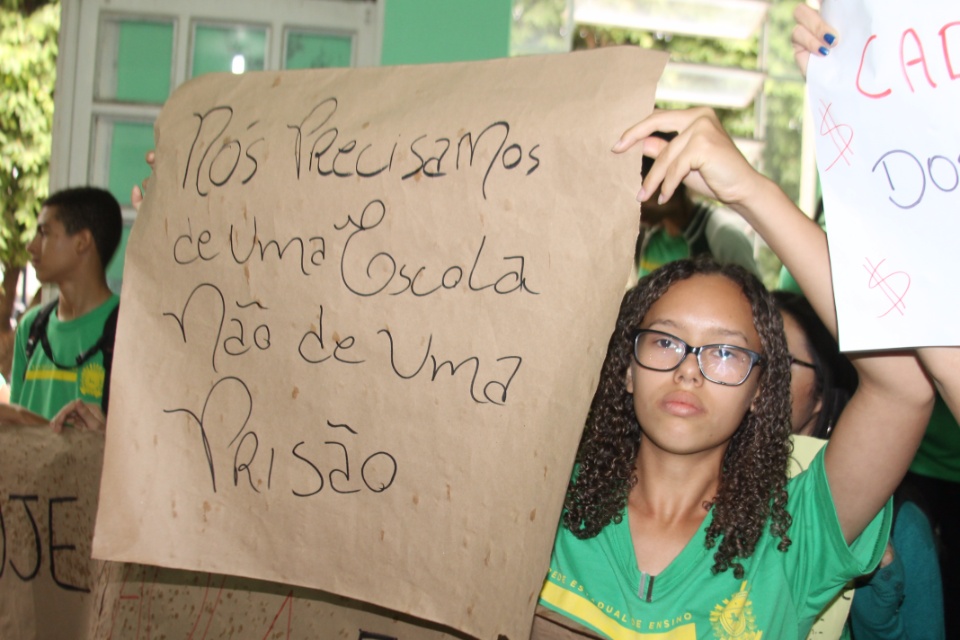 Nós Precisamos
de Uma Escola
Não de Uma
Prisão
CAD
$
DO
$
OJE
REDE ESTADUAL DE ENSINO